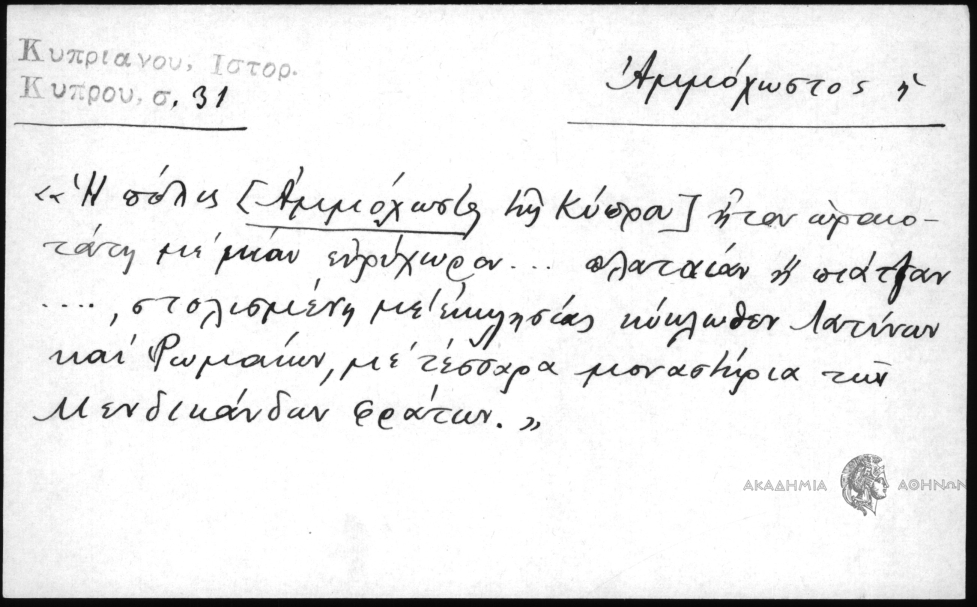 Κυπριανου, Ιστορ.
Κυπρου, σ. 31
Ἀμμόχωστος ἡ
«Ἡ πόλις [Ἀμμόχωστος τῆς Κύπρου] ἦτον ὡραιο-
τάτη μὲ μίαν εὐρύχωρον... πλατεῖαν ἢ πιάτζαν
...., στολισμένη μὲ ἐκκλησίας κύκλωθεν Λατίνων
καὶ Ρωμαίων, μὲ τέσσαρα μοναστήρια τῶν
Μενδικάνδων Φράτων.»
ΑΚΑΔΗΜΙΑ ΑΘΗΝΩΝ